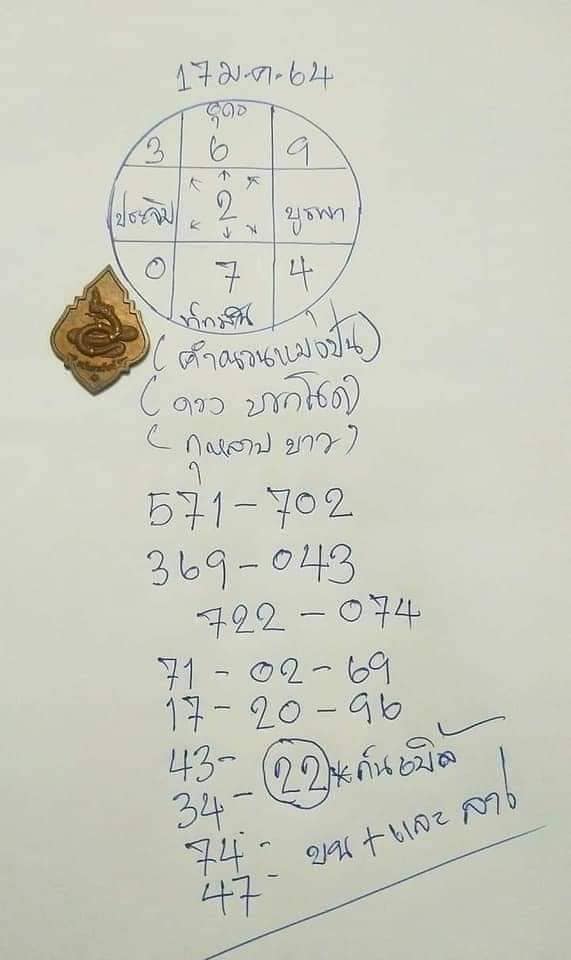 17 ม.ค. 64
อุดร
3 6 9
ประจิม 2 บูรพา
0 7 4
ทักษิณ
(คำนวนแม่งป่น)
(ดาว บารโนด)
(กุหลาบ ขาว)
571 - 702
369 - 043
722 - 074
71 - 02 - 69
17 - 20 - 96
43 -
34 - 22
74 -
47 -
บน + และ ล่าง